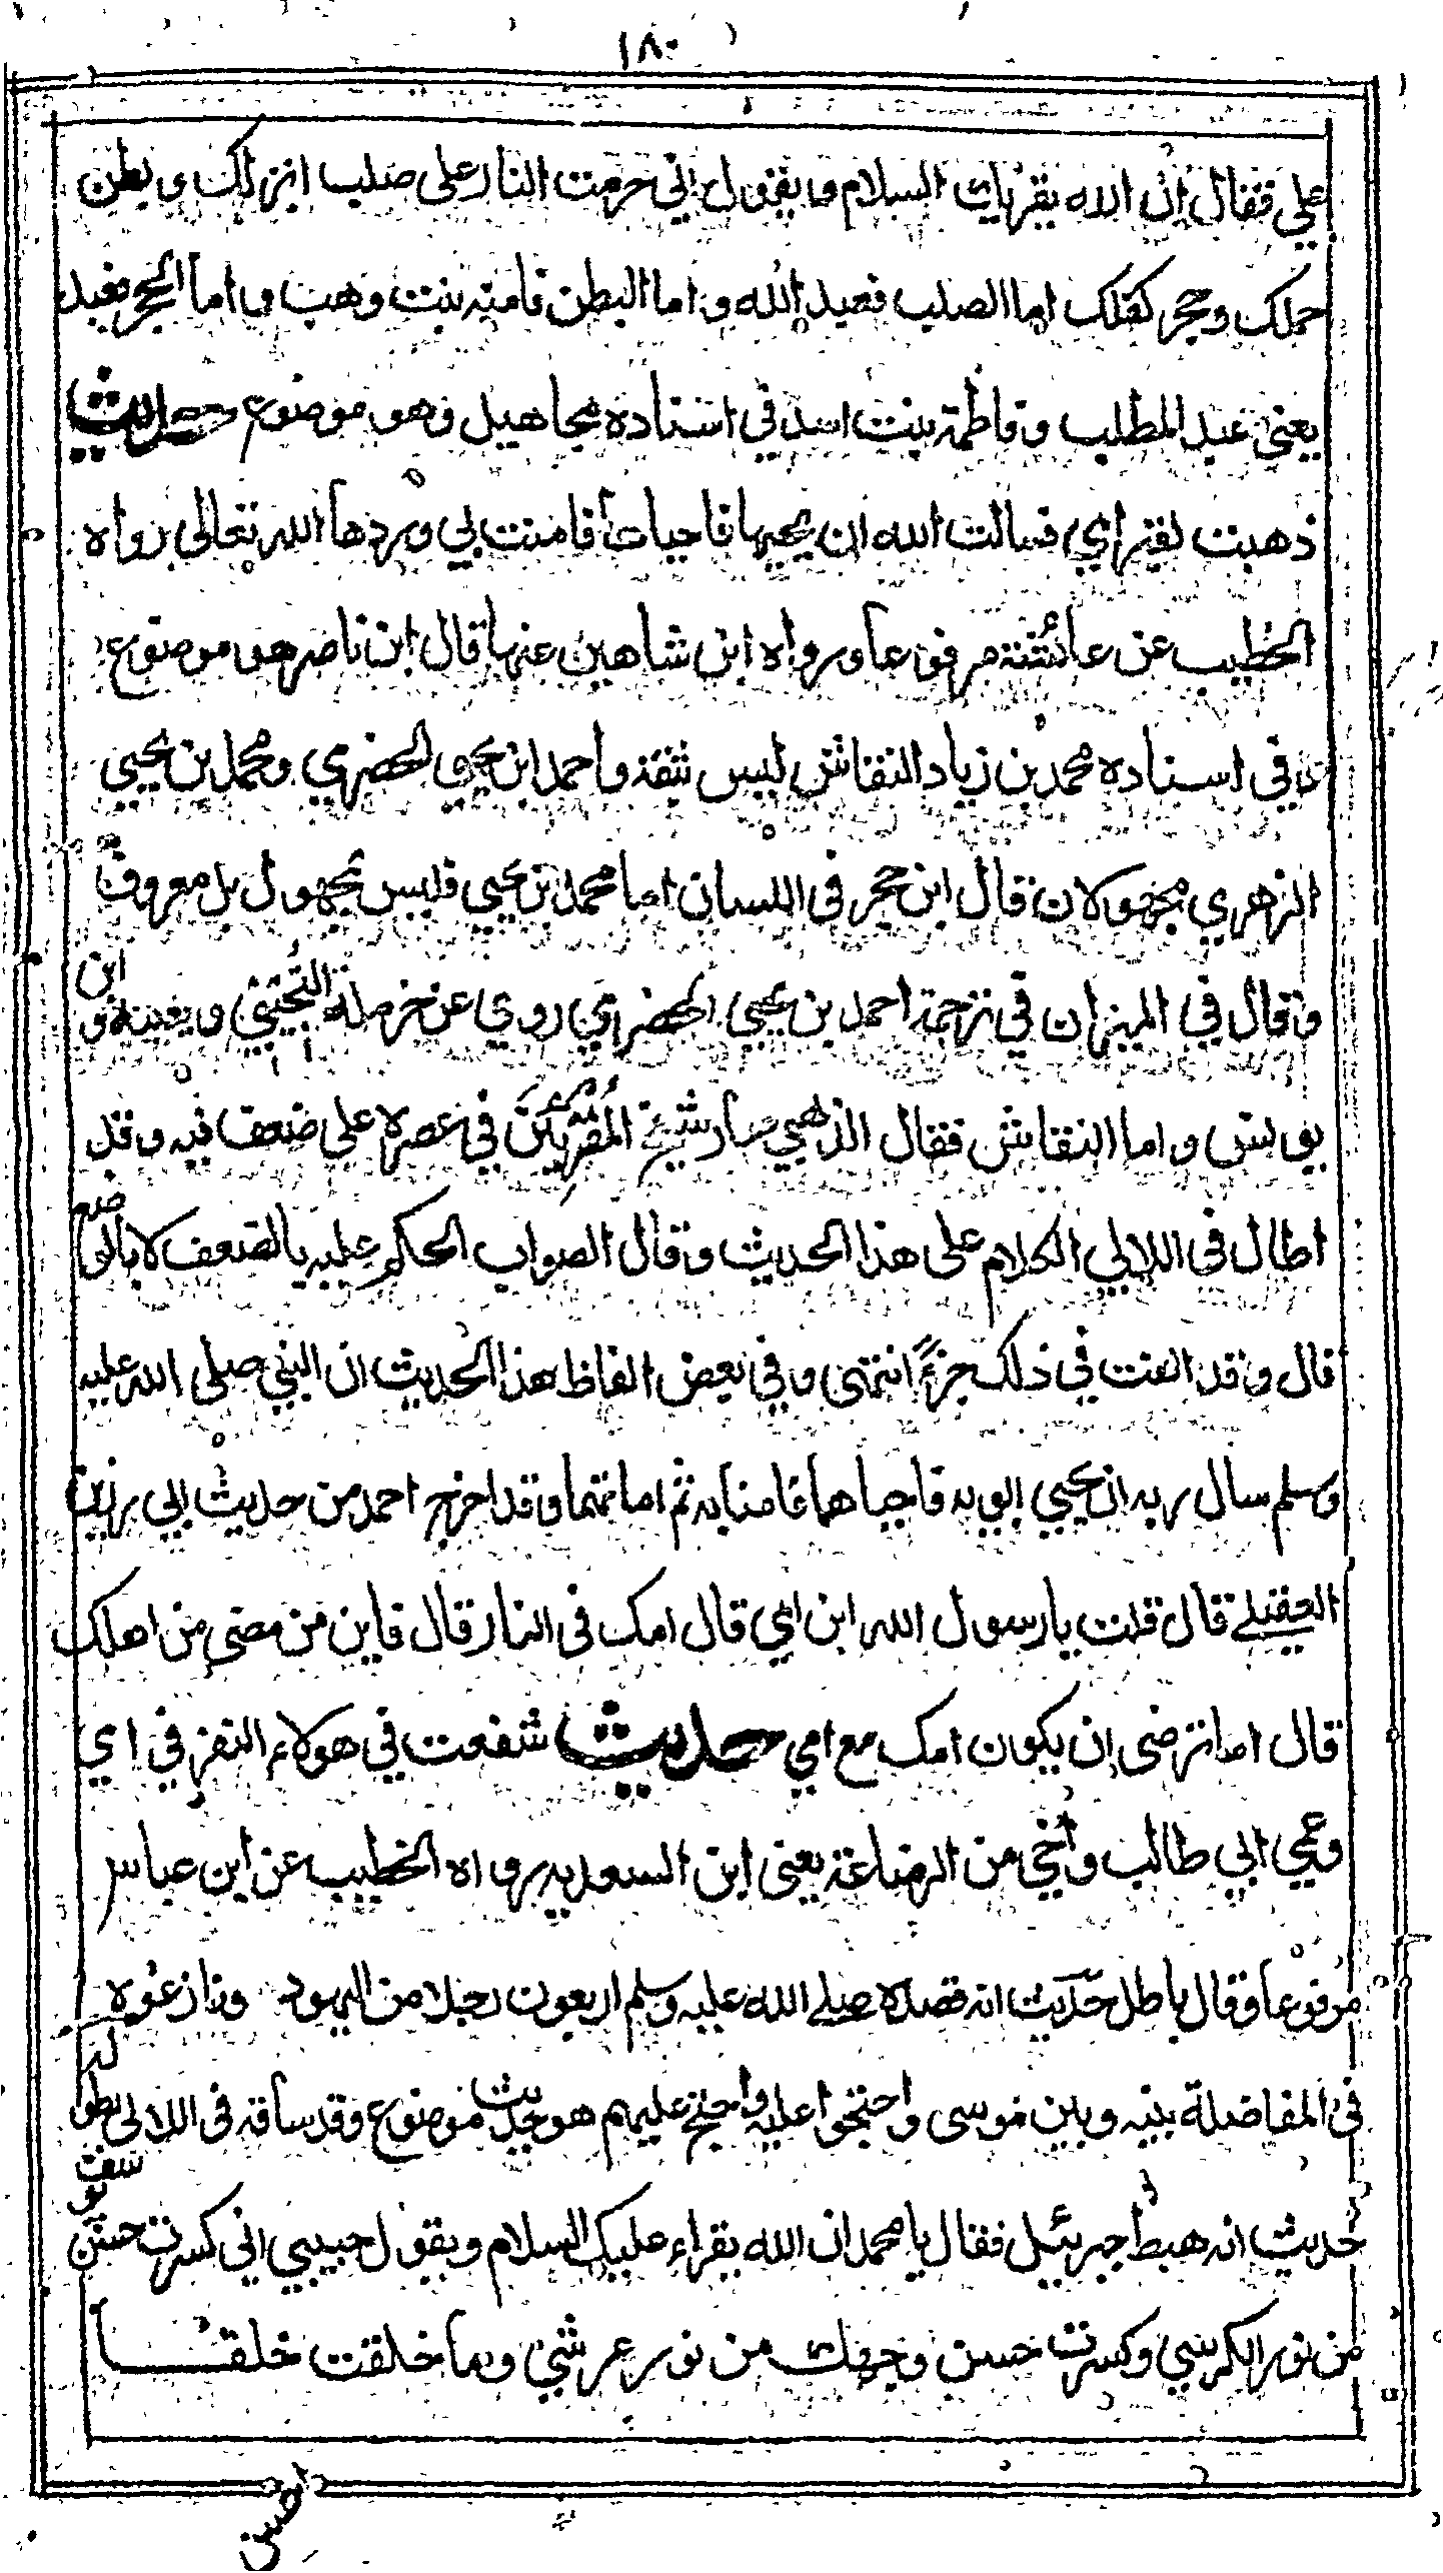 ١٨٠
علي فقال ان الله يقريك السلام ويقول اني حرمت النار على صلب انزلك وبطن
حملك وحجر كفلك اما الصلب فعبد الله واما البطن فامنة بنت وهب واما الحجر فعبد
يعني عبد المطلب وفاطمة بنت اسد في اسناده مجاهيل وهو موضوع حديث
ذهبت لقبر امي فسالت الله ان يحيها فاحياها فامنت بي وردها الله تعالى رواه
الخطيب عن عائشة مرفوعا ورواه ابن شاهين عنها قال ابن ناصر هو موضوع
وفي اسناده محمد بن زياد النقاش ليس ثقة واحمد ابن يحيى الحضرمي ومحمد بن يحيى
الزهري مجهولان قال ابن حجر في اللسان اما محمد بن يحيى فليس بمجهول بل معروف
وقال في الميزان في ترجمة احمد بن يحيى الحضرمي روي عن حرملة التجيبي ولينه ابن
يونس واما النقاش فقال الذهبي صار شيخ المقرئين في عصره على ضعف فيه وقد
اطال في اللالي الكلام على هذا الحديث وقال الصواب الحكم عليه بالضعف لا بالوضع
قال وقد الفت في ذلك جزءً انتهى وفي بعض الفاظ هذا الحديث ان النبي صلى الله عليه
وسلم سال ربه ان يحيي ابويه فاحياهما فامنا به ثم اماتهما وقد اخرج احمد من حديث ابي رزين
العقيلي قال قلت يا رسول الله اين امي قال امك في النار قال فاين من مضى من اهلك
قال اما ترضى ان يكون امك مع امي حديث شفعت في هولاء النفر في ابي
وعمي ابي طالب وأخي من الرضاعة يعني ابن السعدية رواه الخطيب عن ابن عباس
مرفوعا وقال باطل حديث انه قصده صلى الله عليه وسلم اربعون رجلا من اليهود ونازعوه
في المفاضلة بينه وبين موسى واحتجوا عليه واحتج عليهم هو حديث موضوع وقد ساقه في اللالي بطوله
حديث انه هبط جبرئيل فقال يا محمد ان الله يقراء عليك السلام ويقول حبيبي اني كسوت حسن يوسف
من نور الكرسي وكسوت حسن وجهك من نور عرشي وما خلقت خلقا
احسن